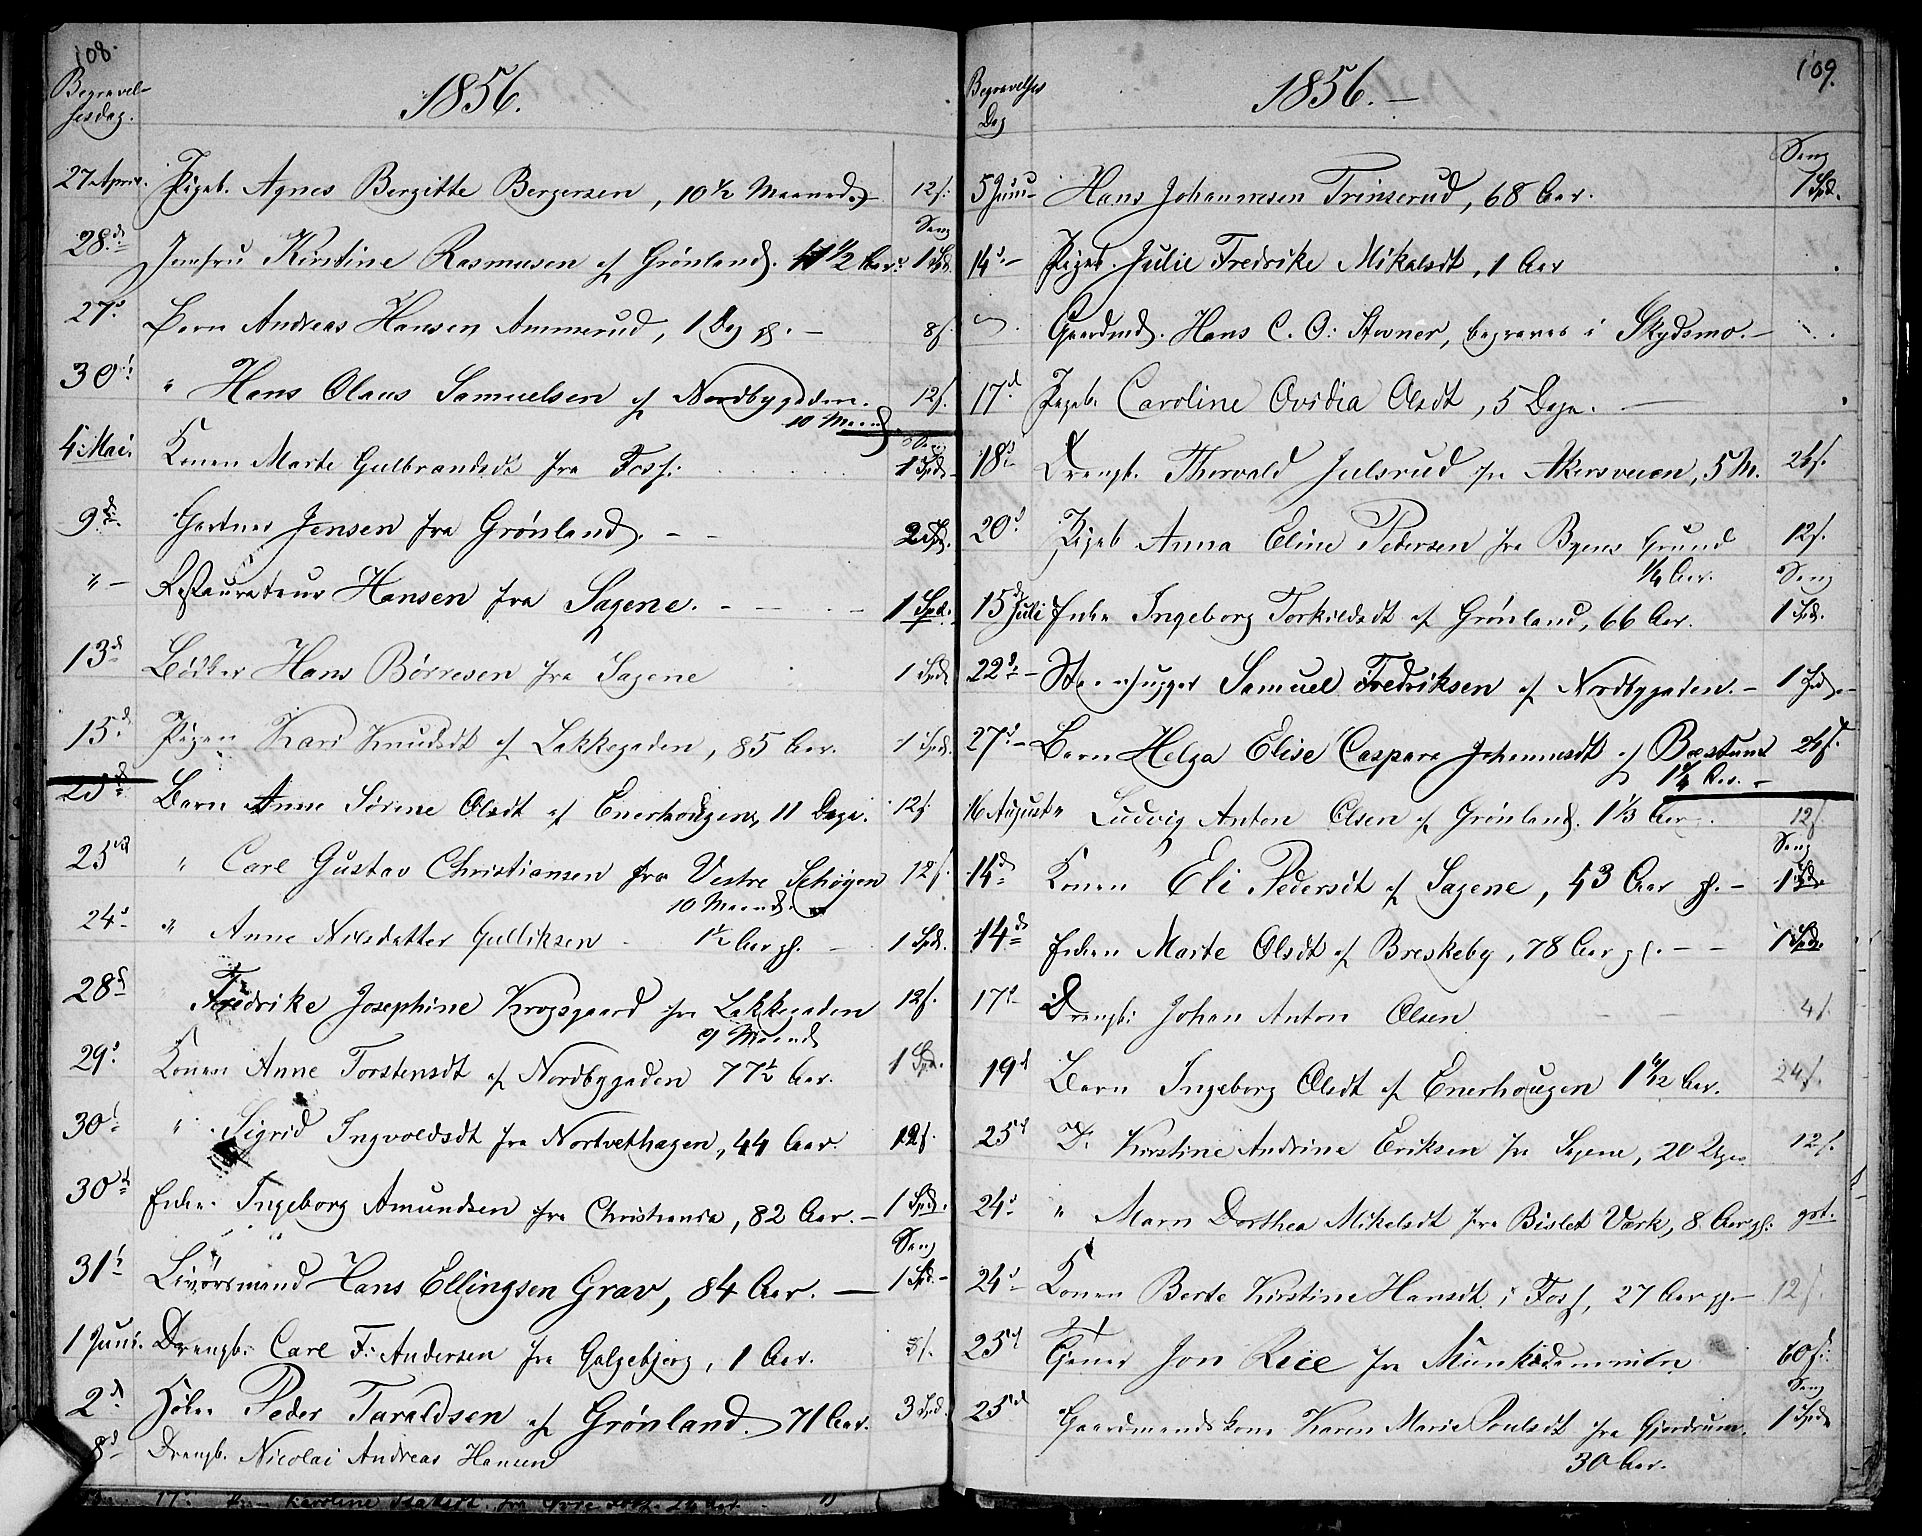 108.
Begravel-
sesdag.
1856.
27 April. Pigeb. Agnes Bergitte Bergersen, 10 1/2 Maaneder 12 s.
Seng
28.d Jomfru Kirstine Rasmusen af Grønland. 41 1/2 Aar. 1 Spd.
27.d Barn Andreas Hansen Ammerud, 1 Dag gl. – 8 s.
30.d " Hans Olaus Samuelsen af Nordbygaden. 12 s.
10 Maand.
Seng
4 Mai. Konen Marte Gulbrandsdt fra Foss. 1 Spd.
9.d Gartner Jensen fra Grønland. – – 2 Spd.
" – Restaurateur Hansen fra Sagene. – – – 1 Spd.
13.d Bødker Hans Börresen fra Sagene 1 Spd.
15.d Pigen Kari Knudsdt af Lakkegaden, 85 Aar. 1 Spd.
23.d Barn Anne Sørine Olsdt af Enerhougen, 11 Dage. 12 s.
25.d " Carl Gustav Christiansen fra Vestre Schøyen 12 s.
10 Maand.
24.d " Anne Nilsdatter Gulliksen 1 1/2 Aar gl. – 1 Spd.
28.d Fredrike Josephine Krogsgaard fra Lakkegaden 12 s.
9 Maand
29.d Konen Anne Torstensdt af Nordbygaden 77 1/2 Aar. 1 Spd.
30.d " Sigrid Ingvoldsdt fra Nortvethagen, 44 Aar. 12 s.
30.d Enken Ingeborg Amundsen fra Christiania, 82 Aar. – 1 Spd.
Seng
31.d Livørsmand Hans Ellingsen Grav, 84 Aar. – 1 Spd. –
1 Juni. Drengb. Carl F. Andersen fra Galgebjerg, 1 Aar. 8 s.
2.d Peder Taraldsen af Grønland. 71 Aar. 3 Spd.
8.d Drengb. Nicolai Andreas Hansen
17. Karoline fra Øvre Foss 24 Aar.
109.
Begravelses
Dag
1856. –
Seng
5 Juni – Hans Johannesen Trinserud, 68 Aar. 1 Spd.
14.d – Pigeb. Julie Fredrike Mikalsdt, 1 Aar
Gaardmd. Hans C. O. Stovner, begraves i Skydsmo. –
17.d Pigeb. Caroline Ovidia Olsdt, 5 Dage. –
18.d Drengb. Thorvald Julsrud fra Akersveien, 5 M. 24 s.
20.d Pigeb Anna Eline Pedersen fra Byens Grund 12 s.
1/4 Aar. Seng
15 Juli Enken Ingeborg Torkildsdt af Grønland, 66 Aar. 1 Spd.
22.d – Steenhugger Samuel Fredriksen af Nordbygaden. – 1 Spd. –
27.d – Barn Helga Elise Caspara Johannesdt af Bæstum 24 s.
1 3/4 Aar. –
16 August " Ludvig Anton Olsen af Grønland. 1 1/3 Aar. 12 s.
Seng
14.d Konen Eli Pedersdt af Sagene, 43 Aar gl. – 1 Spd.
14.d Enken Marte Olsdt af Breskeby, 78 Aar gl. – – 1 Spd.
17.d Drengb. Johan Anton Olsen – – 4 s.
19.d Barn Ingeborg Olsdt af Enerhougen 1 6/12 Aar. 24 s.
25.d D. Kirstine Andrine Eriksen fra Sagene, 20 Uger 12 s.
24.d " Maren Dorthea Mikelsdt fra Bislet Værk, 8 Aar gl. grt.
24.d – Konen Berte Kirstine Hansdt. i Foss, 27 Aar gl. – 12 s.
25.d Tjener Jon Leie fra Munkedammen 60 s.
Seng
25.d Gaardmandskone Karen Marie Poulsdt fra Gjerdrum. 1 Spd.
30 Aar.